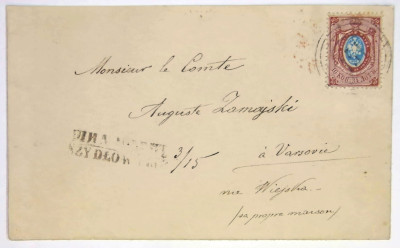 Monsieur le Comte
Auguste Zamojski
3/15
à Varsovie
rue Wiejska
(sa propre maison)